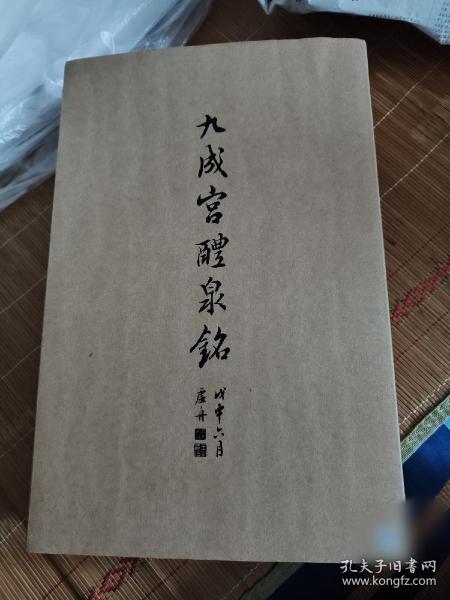 九成宫醴泉銘
戊申六月
虛舟
孔夫子旧书网
www.kongfz.com